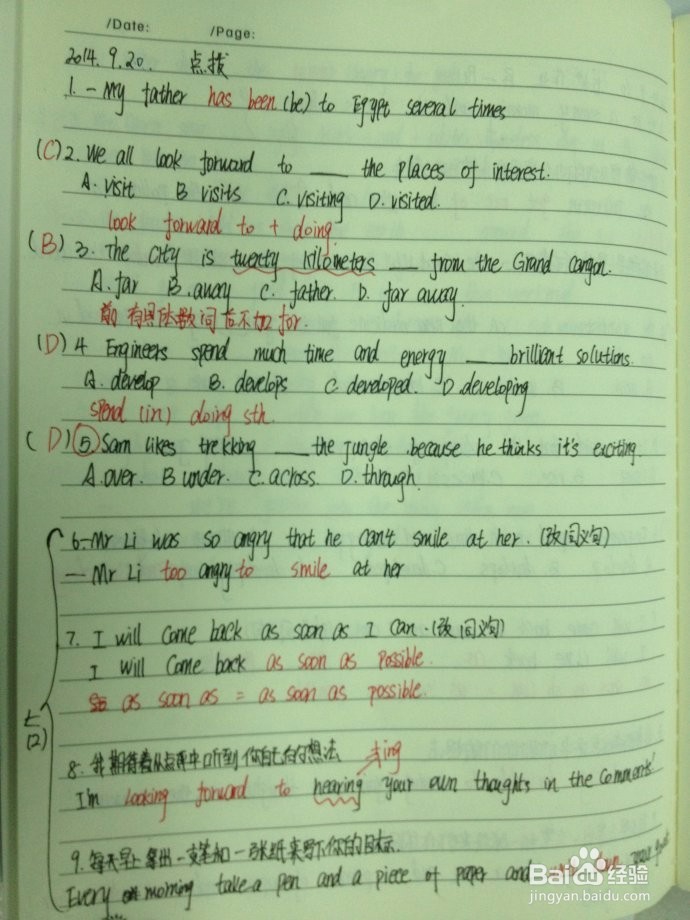 /Date: /Page:
2014.9.20. 点拨
1. - My father has been (be) to Egypt several times
(C) 2. We all look forward to ___ the places of interest.
A. visit B visits C. visiting D. visited.
look forward to + doing.
(B) 3. The city is twenty kilometers ___ from the Grand canyon.
A. far B. away C. father. D. far away.
前 有具体数词后不加 far.
(D) 4 Engineers spend much time and energy ___ brilliant solutions.
A. develop B. develops C. developed. D. developing
spend (in) doing sth.
(D) ⑤ Sam likes trekking ___ the jungle because he thinks it's exciting.
A. over. B under. C. across. D. through.
6. - Mr Li was so angry that he can't smile at her. (改同义句)
- Mr Li too angry to smile at her
7. I will come back as soon as I can. (改同义句)
I will come back as soon as possible.
as soon as = as soon as possible.
(2)
8. 我期待着从点评中听到你自己的想法 +ing
I'm looking forward to hearing your own thoughts in the comments!
9. 每天早上拿出一支笔和一张纸来写下你的目标.
Every morning take a pen and a piece of paper and write down your goals
Baidu 经验